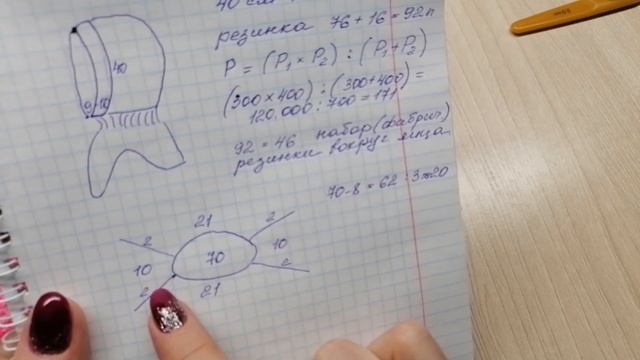 40 см
резинка 76 + 16 = 92 п
P = (P₁ × P₂) : (P₁+P₂)
(300 × 400) : (300+400) =
120.000 : 700 = 171
92 = 46 набор (фабрич)
резинки вокруг лица
70 - 8 = 62 : 3 = 20
40
21
2 2
10 70 10
2 2
21